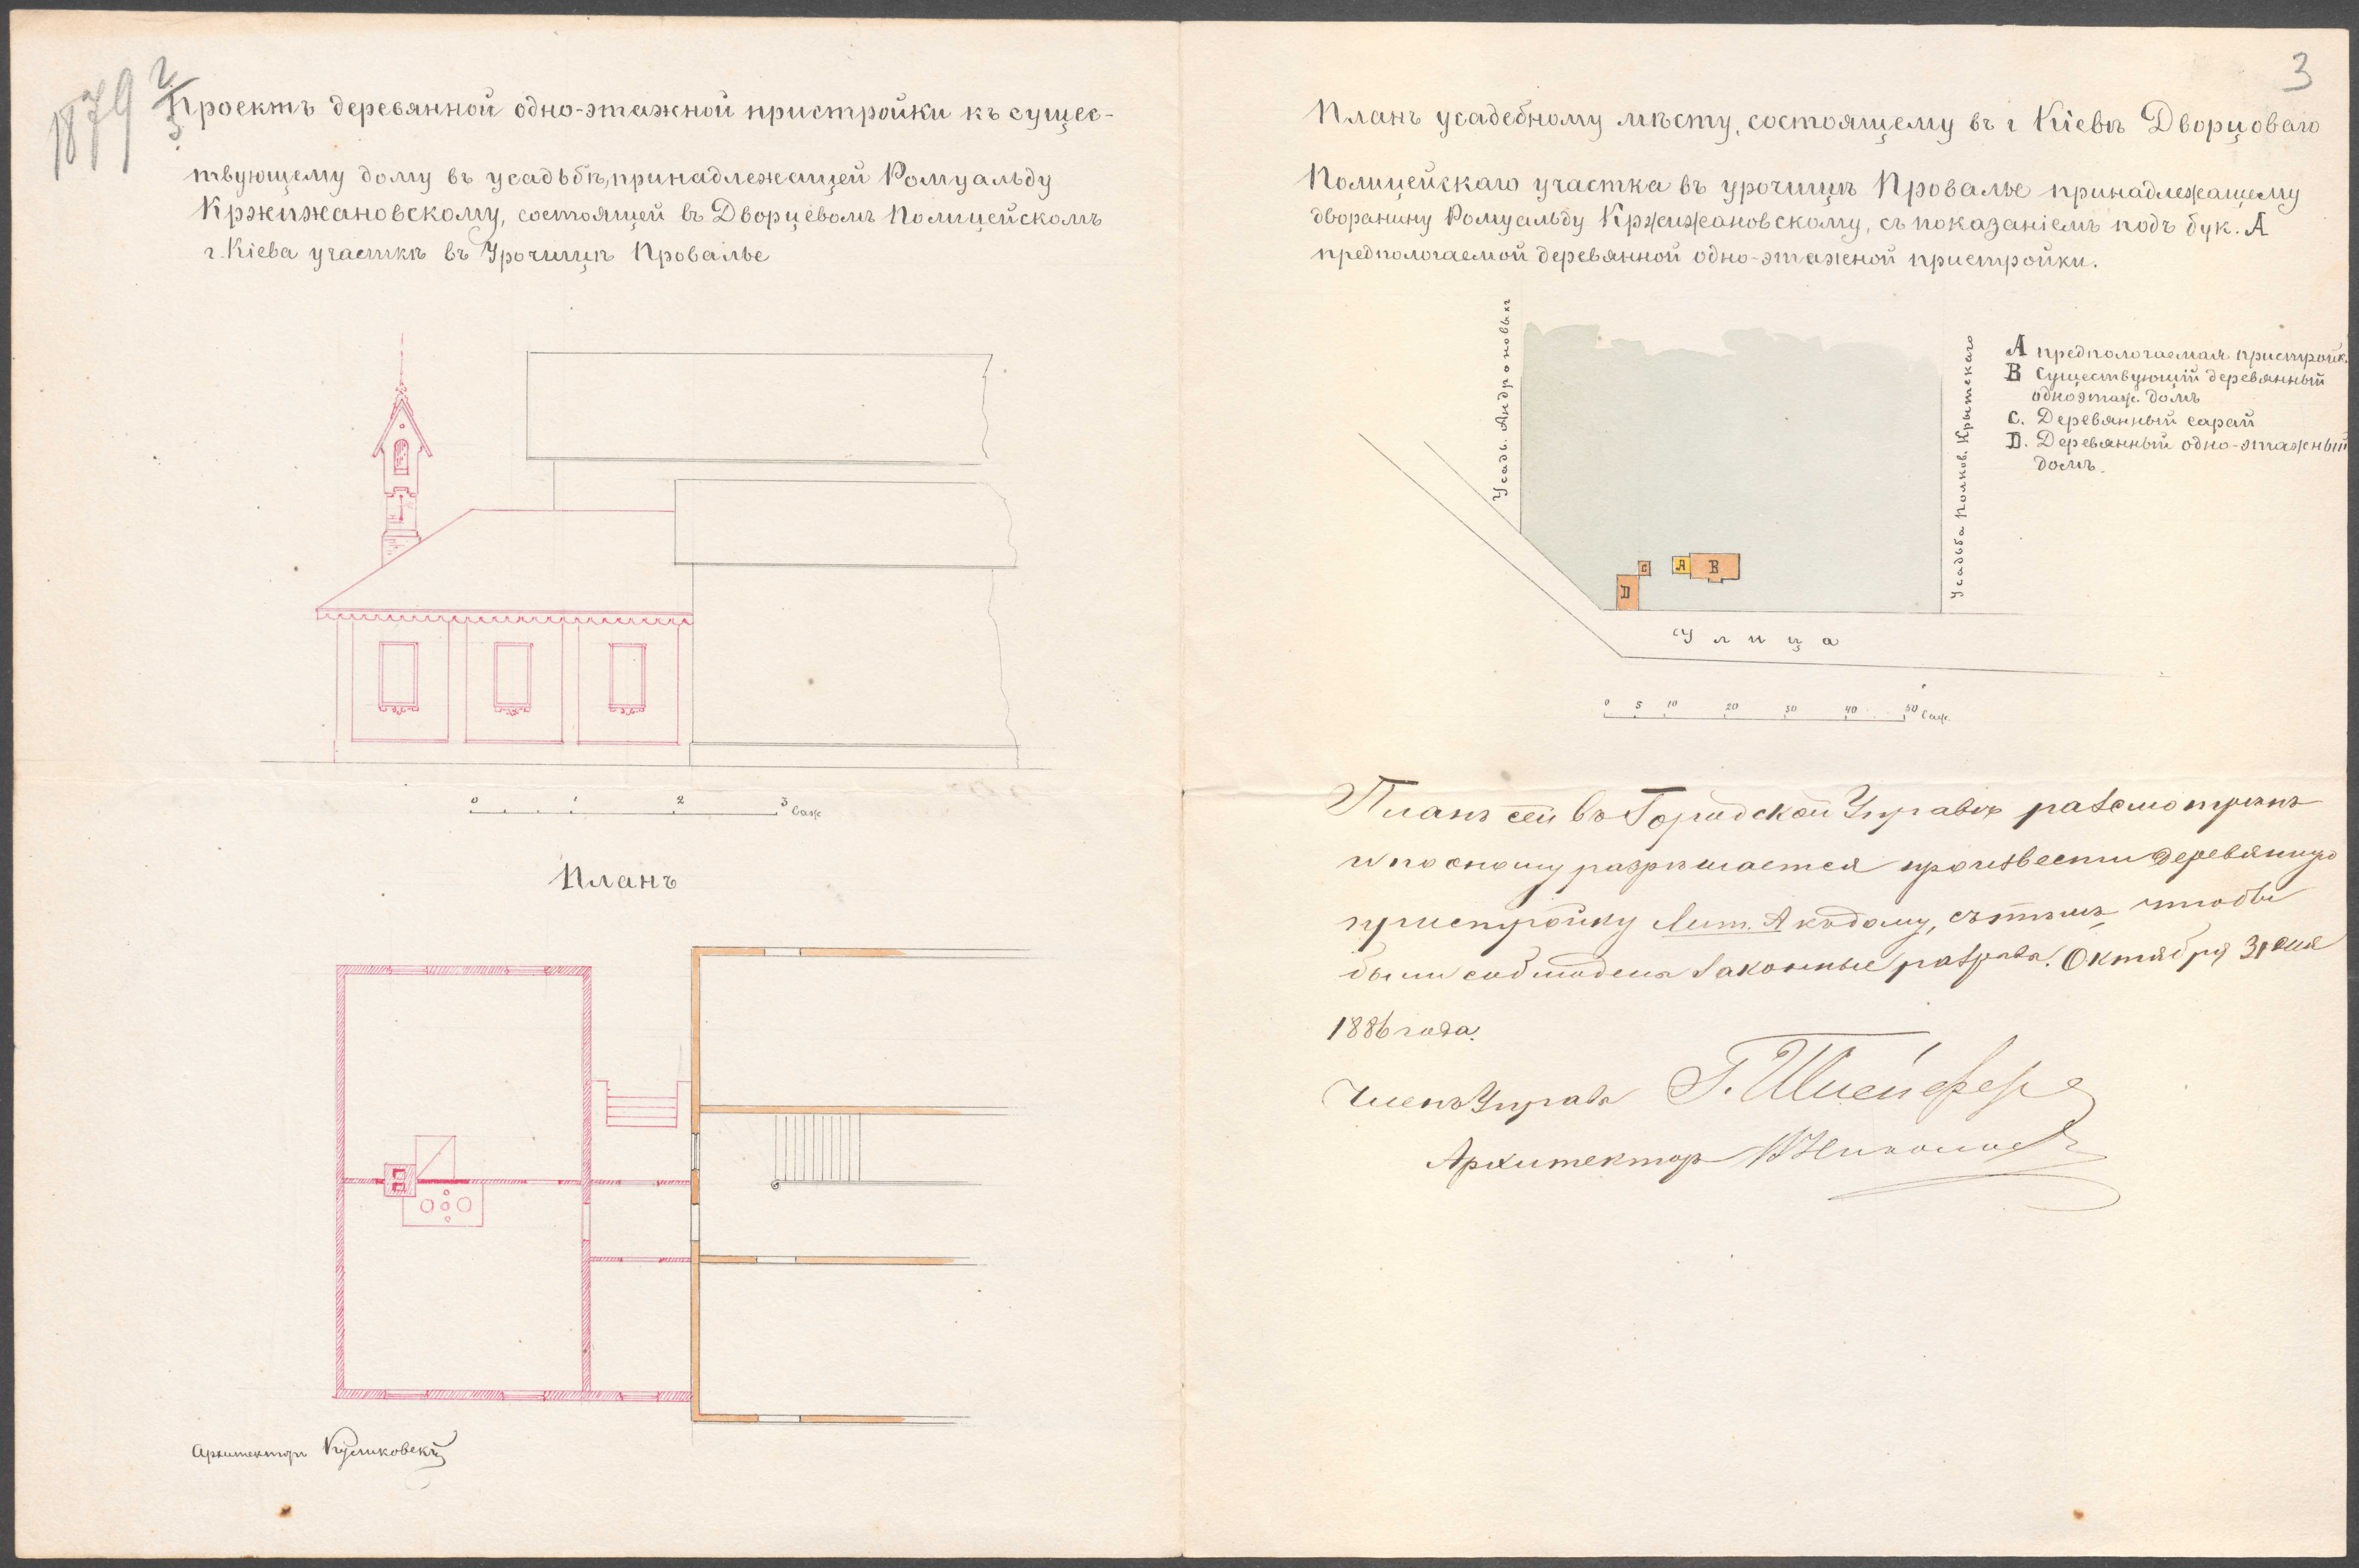 1879 2/3
Проектъ деревянной одно-этажной пристройки къ сущес-
твующему дому въ усадьбѣ, принадлежащей Ромуальду
Кржижановскому, состоящей въ Дворцевомъ Полицейскомъ
г. Кіева участкѣ въ Урочищѣ Провалье
0 1 2 3 саж
Планъ
Архитекторъ Куликовскій
3
Планъ усадебному мѣсту, состоящему въ г Кіевѣ Дворцоваго
Полицейскаго участка въ урочищѣ Провалье принадлежащему
дворянину Ромуальду Кржижановскому, съ показаніемъ подъ бук. А
предпологаемой деревянной одно-этажной пристройки.
Усадь. Андроновыхъ
Усадьба Полков. Крытскаго
А предпологаемая пристройк.
В Существующій деревянный
одноэтаж. домъ
С. Деревянный сарай
D. Деревянный одно-этажный
домъ.
C A B
D
Улица
0 5 10 20 30 40 50 Саж.
Планъ сей въ Городской Управѣ разсмотренъ
и по оному разрѣшается произвести деревянную
пристройку Лит. А къ дому, съ тѣмъ, чтобы
были соблюдена законные разрывы. Октября 31 дня
1886 года.
Членъ Управы Г. Шлейферъ
Архитекторъ В Николаевъ